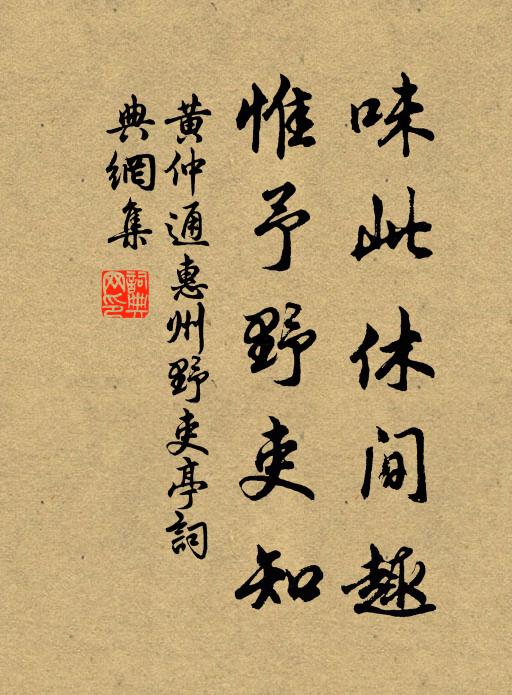 味此休间趣
惟予野吏知
黄仲通惠州野吏亭詞
典網集
詞典
网印